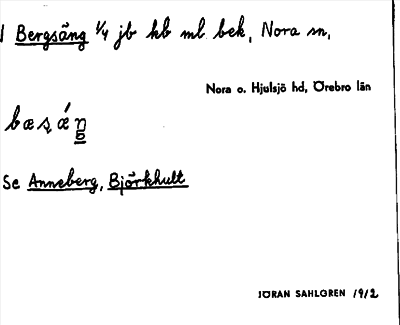 1 Bergsäng ¼ jb kb ml bek, Nora sn,
Nora o. Hjulsjö hd, Örebro län
bæsǽŋ
Se Anneberg, Björkhult
JÖRAN SAHLGREN 1912